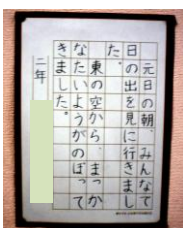 元日の朝、みんなで
日の出を見に行きまし
た。
東の空から、まっか
なたいようがのぼって
きました。
二年